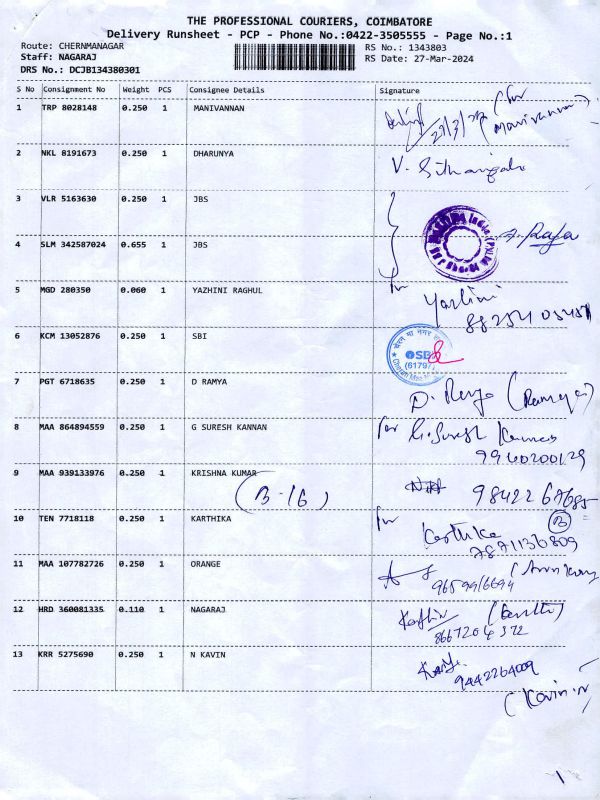 THE PROFESSIONAL COURIERS, COIMBATORE
Delivery Runsheet - PCP - Phone No.:0422-3505555 - Page No.:1
Route: CHERNMANAGAR RS No.: 1343803
Staff: NAGARAJ RS Date: 27-Mar-2024
DRS No.: DCJB134380301
S No Consignment No Weight PCS Consignee Details Signature
1 TRP 8028148 0.250 1 MANIVANNAN (for
27/3/24 Manivannan)
2 NKL 8191673 0.250 1 DHARUNYA V.
3 VLR 5163630 0.250 1 JBS
A. Raja
4 SLM 342587024 0.655 1 JBS
5 MGD 280350 0.060 1 YAZHINI RAGHUL for
Yazhini
6 KCM 13052876 0.250 1 SBI
SB
(61797)
7 PGT 6718635 0.250 1 D RAMYA
D.
8 MAA 864894559 0.250 1 G SURESH KANNAN for G. Suresh Kannan
9940200129
9 MAA 939133976 0.250 1 KRISHNA KUMAR
(B-16) 9842267685
10 TEN 7718118 0.250 1 KARTHIKA for
Karthika B
7871136809
11 MAA 107782726 0.250 1 ORANGE
12 HRD 360081335 0.110 1 NAGARAJ
8667204372
13 KRR 5275690 0.250 1 N KAVIN
9442264009
(Kavin.N)
1